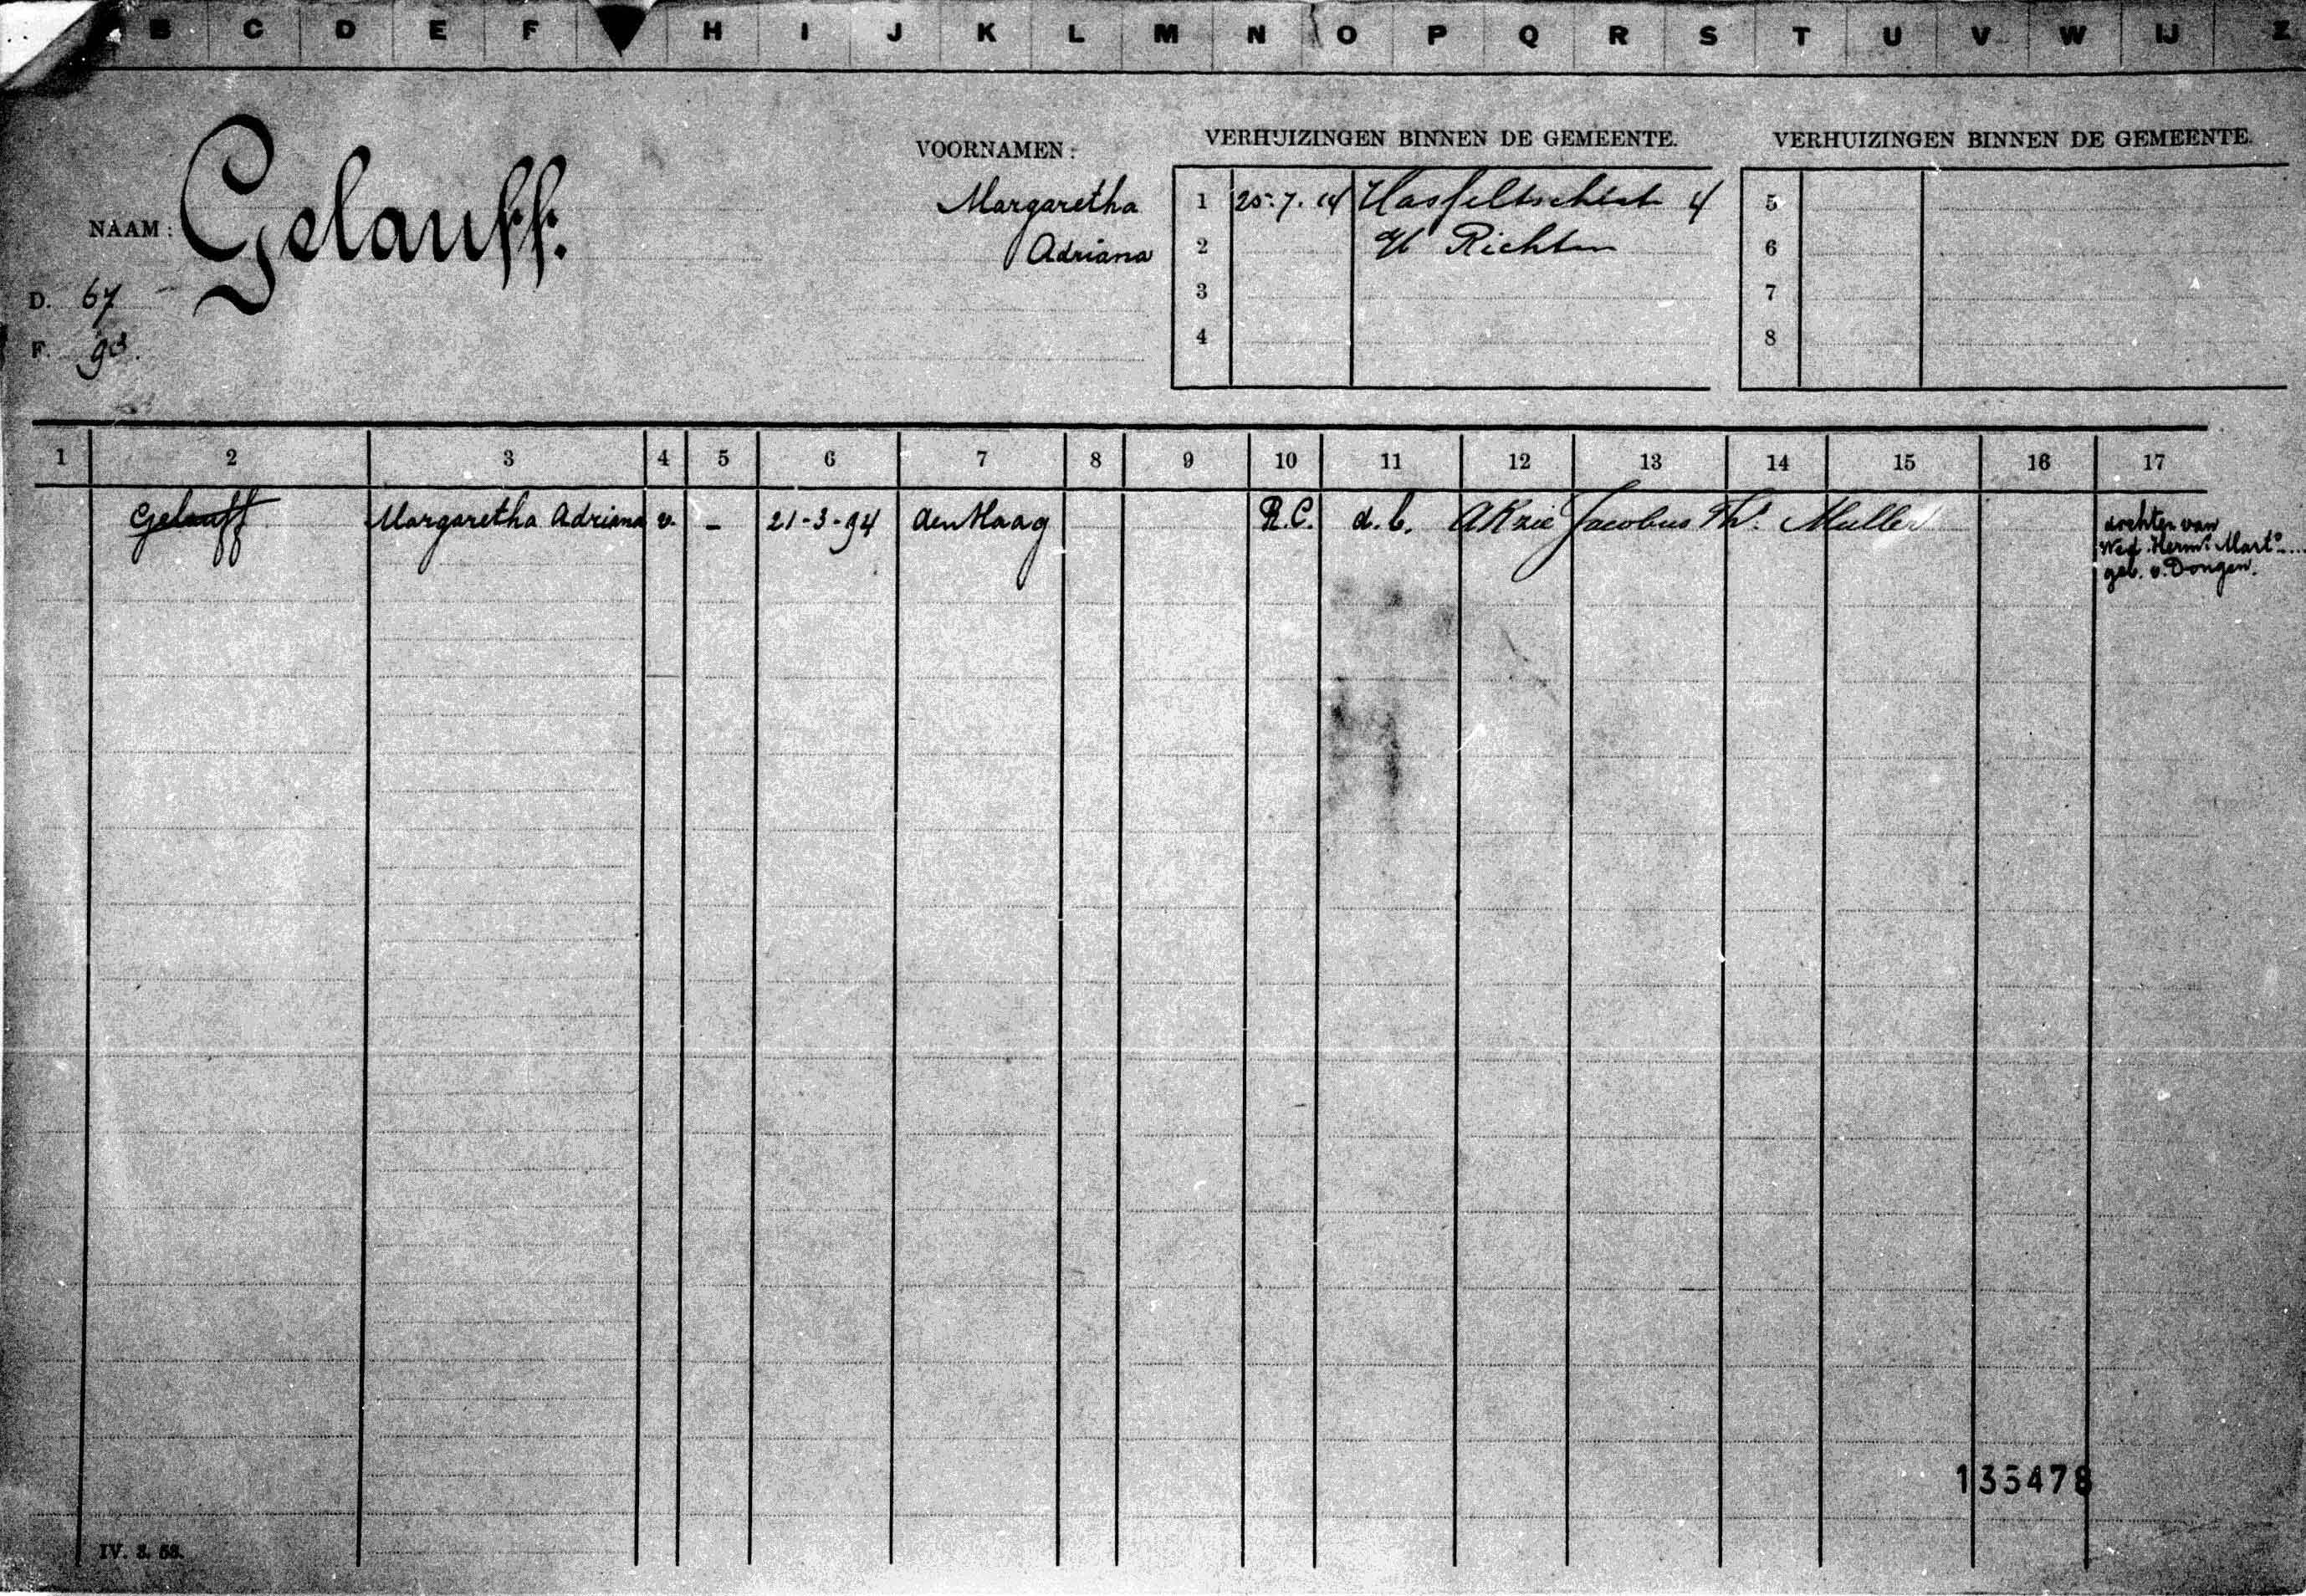 B C D E F H I J K L M N O P Q R S T U V W IJ Z
NAAM: Gelauff.
D. 67
F. 93.
VOORNAMEN:
Margaretha
Adriana
VERHUIZINGEN BINNEN DE GEMEENTE.
1 25.7.14 Hasseltschestr 4
2 Richter
3
4
VERHUIZINGEN BINNEN DE GEMEENTE.
5
6
7
8
1 2 3 4 5 6 7 8 9 10 11 12 13 14 15 16 17
Gelauff Margaretha Adriana v. - 21-3-94 den Haag R.C. d.b. AK zie Jacobus Th. Muller
dochter van
Wed. Herm. Mart.
geb. v. Dongen.
135478
IV. 3. 53.